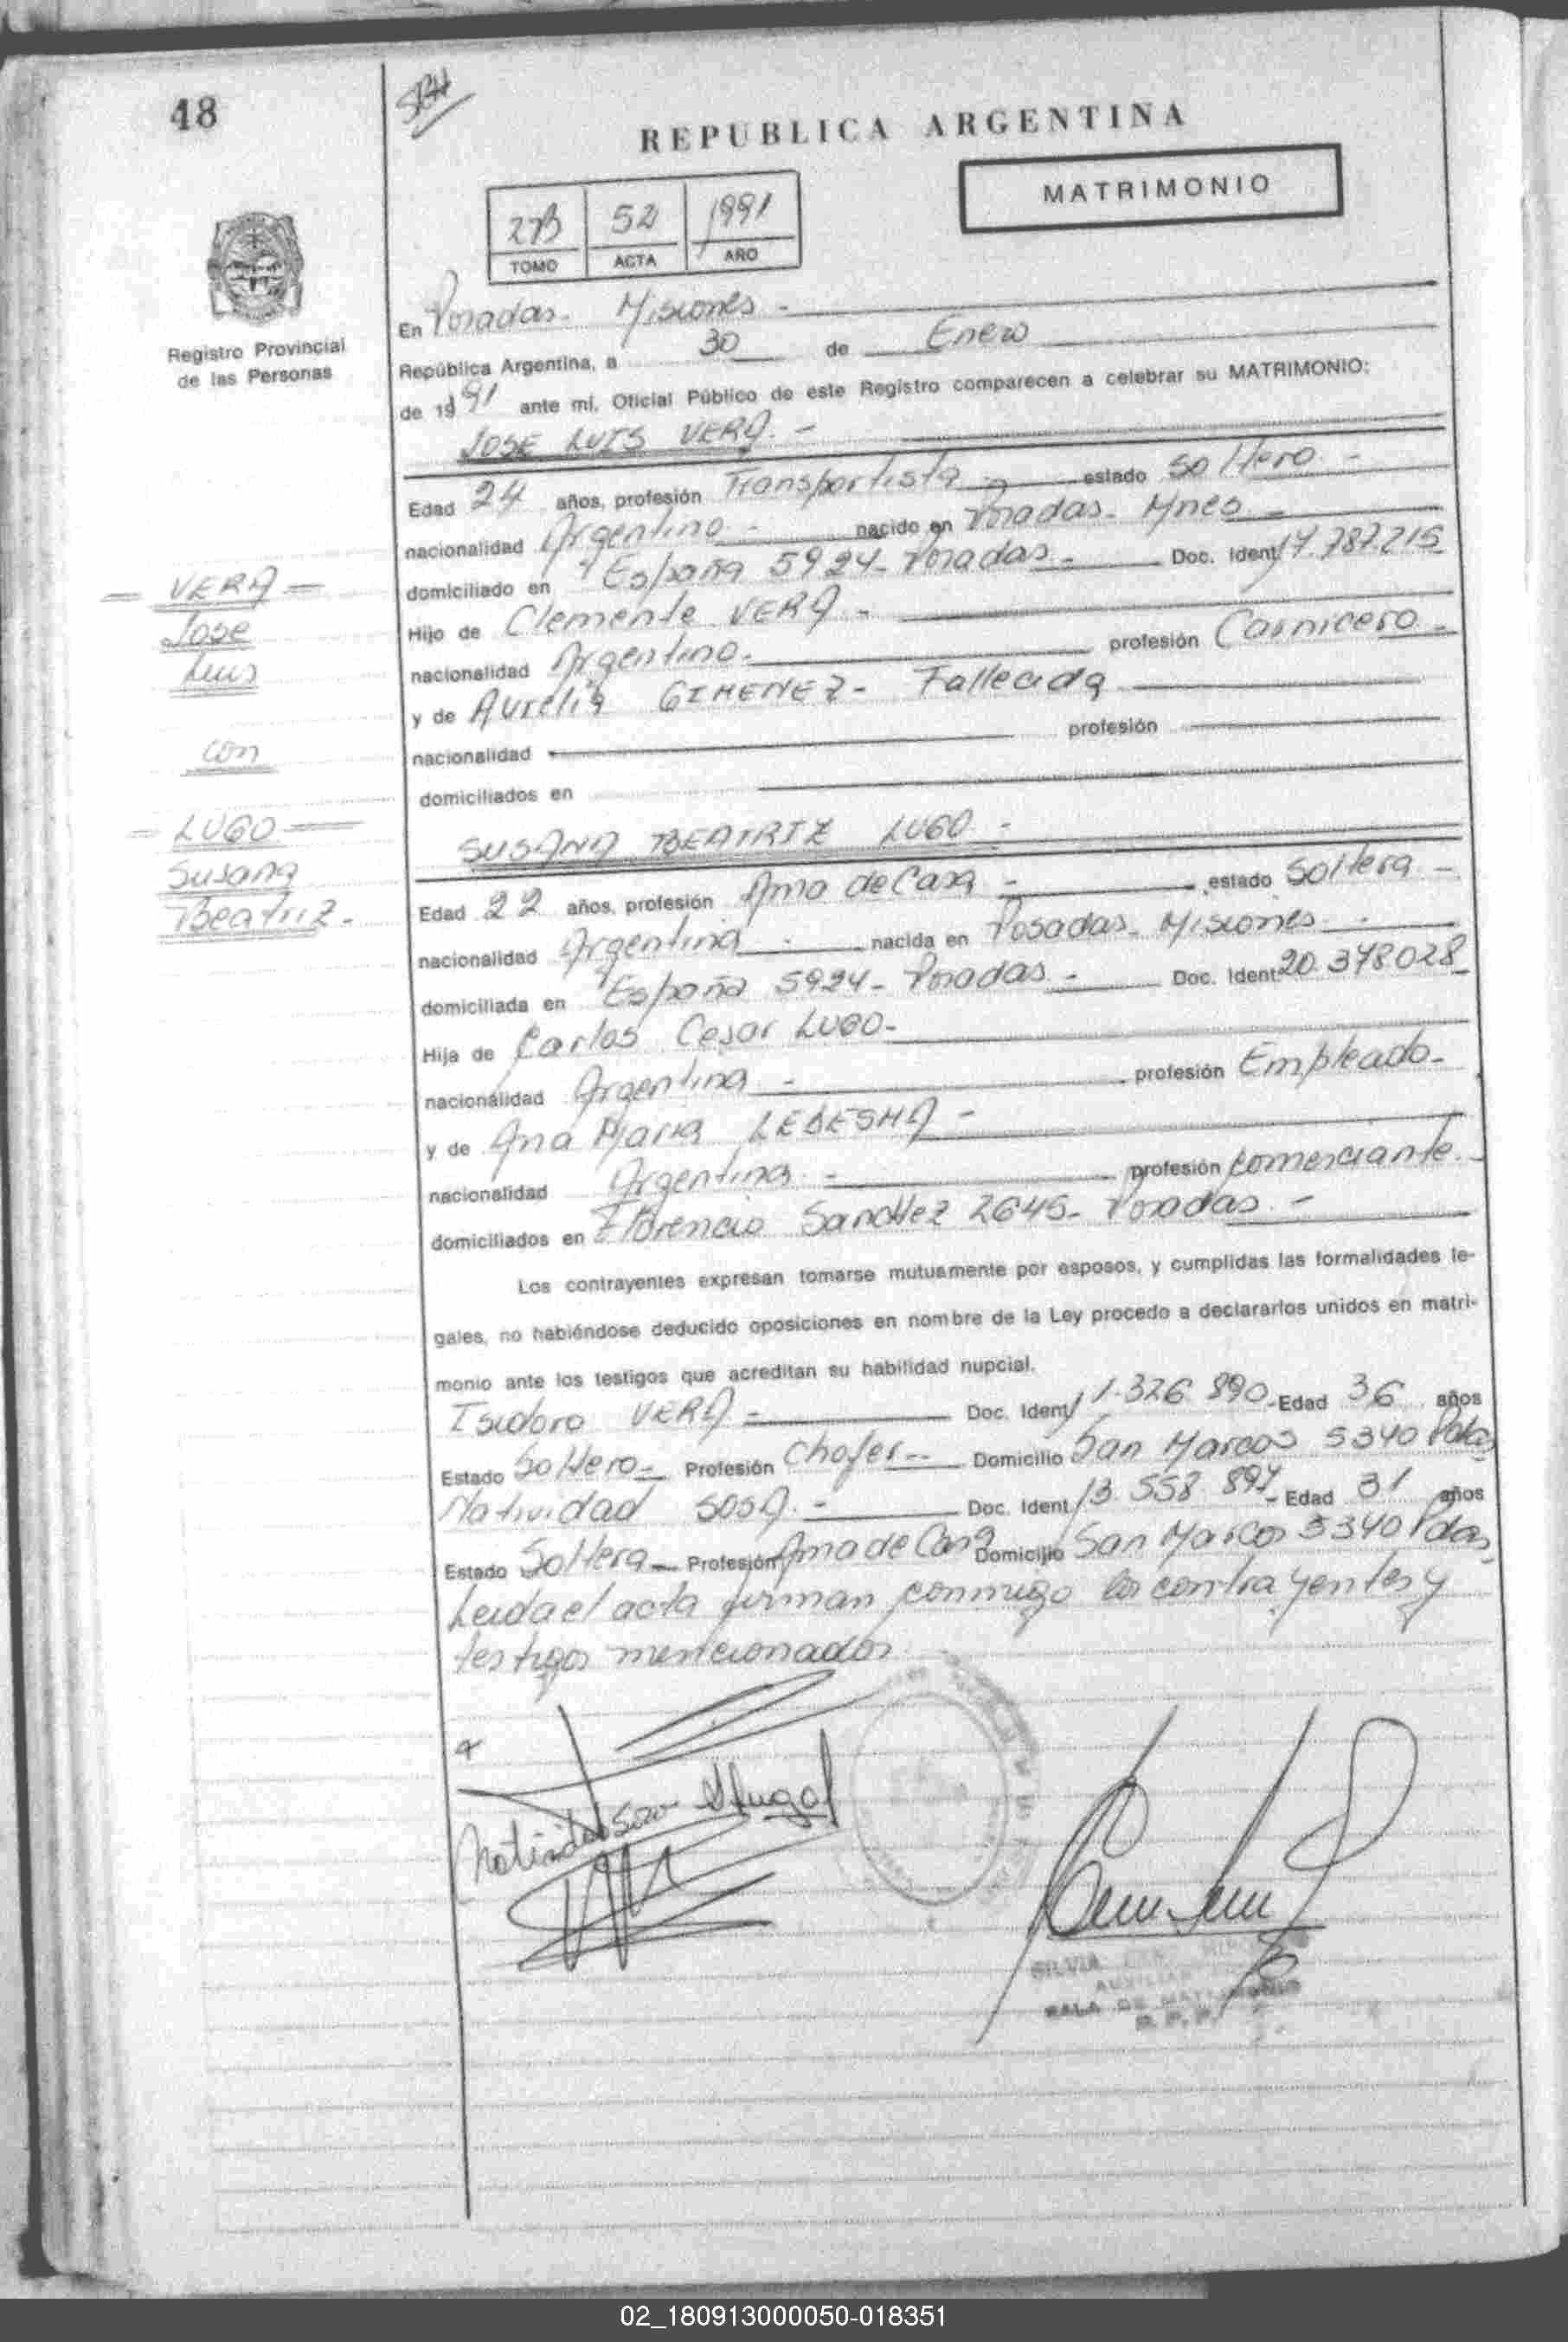 48
REPUBLICA ARGENTINA
MATRIMONIO
52 1991
TOMO ACTA AÑO
Registro Provincial
de las Personas
En Posadas. Misiones -
República Argentina, a 30 de Enero
de 1991 ante mí, Oficial Público de este Registro comparecen a celebrar su MATRIMONIO:
JOSE LUIS VERA. -
Edad 24 años, profesión Transportista - estado Soltero. -
nacionalidad Argentino - nacido en Posadas. Mnes -
domiciliado en España 5924 - Posadas - Doc. Ident 17.787.215
Hijo de Clemente VERA -
nacionalidad Argentino. profesión Carnicero -
y de Aurelia GIMENEZ - Fallecida
nacionalidad profesión
domiciliados en
SUSANA BEATRIZ LUGO -
Edad 22 años, profesión Ama de Casa - estado Soltera -
nacionalidad Argentina - nacida en Posadas - Misiones -
domiciliada en España 5924 - Posadas - Doc. Ident. 20.378028
Hija de Carlos Cesar LUGO -
nacionalidad Argentina - profesión Empleado -
y de Ana Maria LEDESMA -
nacionalidad Argentina - profesión Comerciante.
domiciliados en Florencio Sanchez 2645 - Posadas. -
Los contrayentes expresan tomarse mutuamente por esposos, y cumplidas las formalidades le-
gales, no habiéndose deducido oposiciones en nombre de la Ley procedo a declararlos unidos en matri-
monio ante los testigos que acreditan su habilidad nupcial.
Isidoro VERA - Doc. Ident 11.326 890 - Edad 36 años
Estado Soltero - Profesión Chofer - Domicilio San Marcos 5340 Pdas
Natividad SOSA. - Doc. Ident 13.558 897 - Edad 31 años
Estado Soltera - Profesión Ama de Casa Domicilio San Marcos 5340 Pdas
Leida el acta firman conmigo los contrayentes y
testigos mencionados
VERA
Jose
Luis
con
LUGO
Susana
Beatriz -
Natividad Sosa
SILVIA
AUXILIAR
SALA DE MATRIMONIO
R. P. P.
02_180913000050-018351